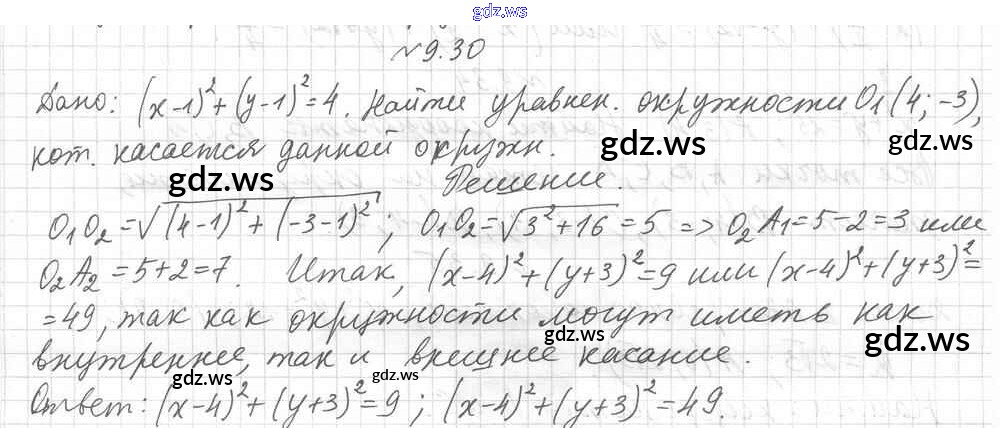 gdz.ws
№9.30
Дано: (x-1)²+(y-1)²=4. Найти уравнен. окружности O₁(4; -3),
кот. касается данной окружн. gdz.ws gdz.ws
gdz.ws Решение.
O₁O₂=√((4-1)²+(-3-1)²); O₁O₂=√(3²+16)=5 => O₂A₁=5-2=3 или
O₂A₂=5+2=7. Итак, (x-4)²+(y+3)²=9 или (x-4)²+(y+3)²=
=49, так как окружности могут иметь как
gdz.ws gdz.ws
внутреннее, так и внешнее касание.
gdz.ws gdz.ws
Ответ: (x-4)²+(y+3)²=9; (x-4)²+(y+3)²=49.